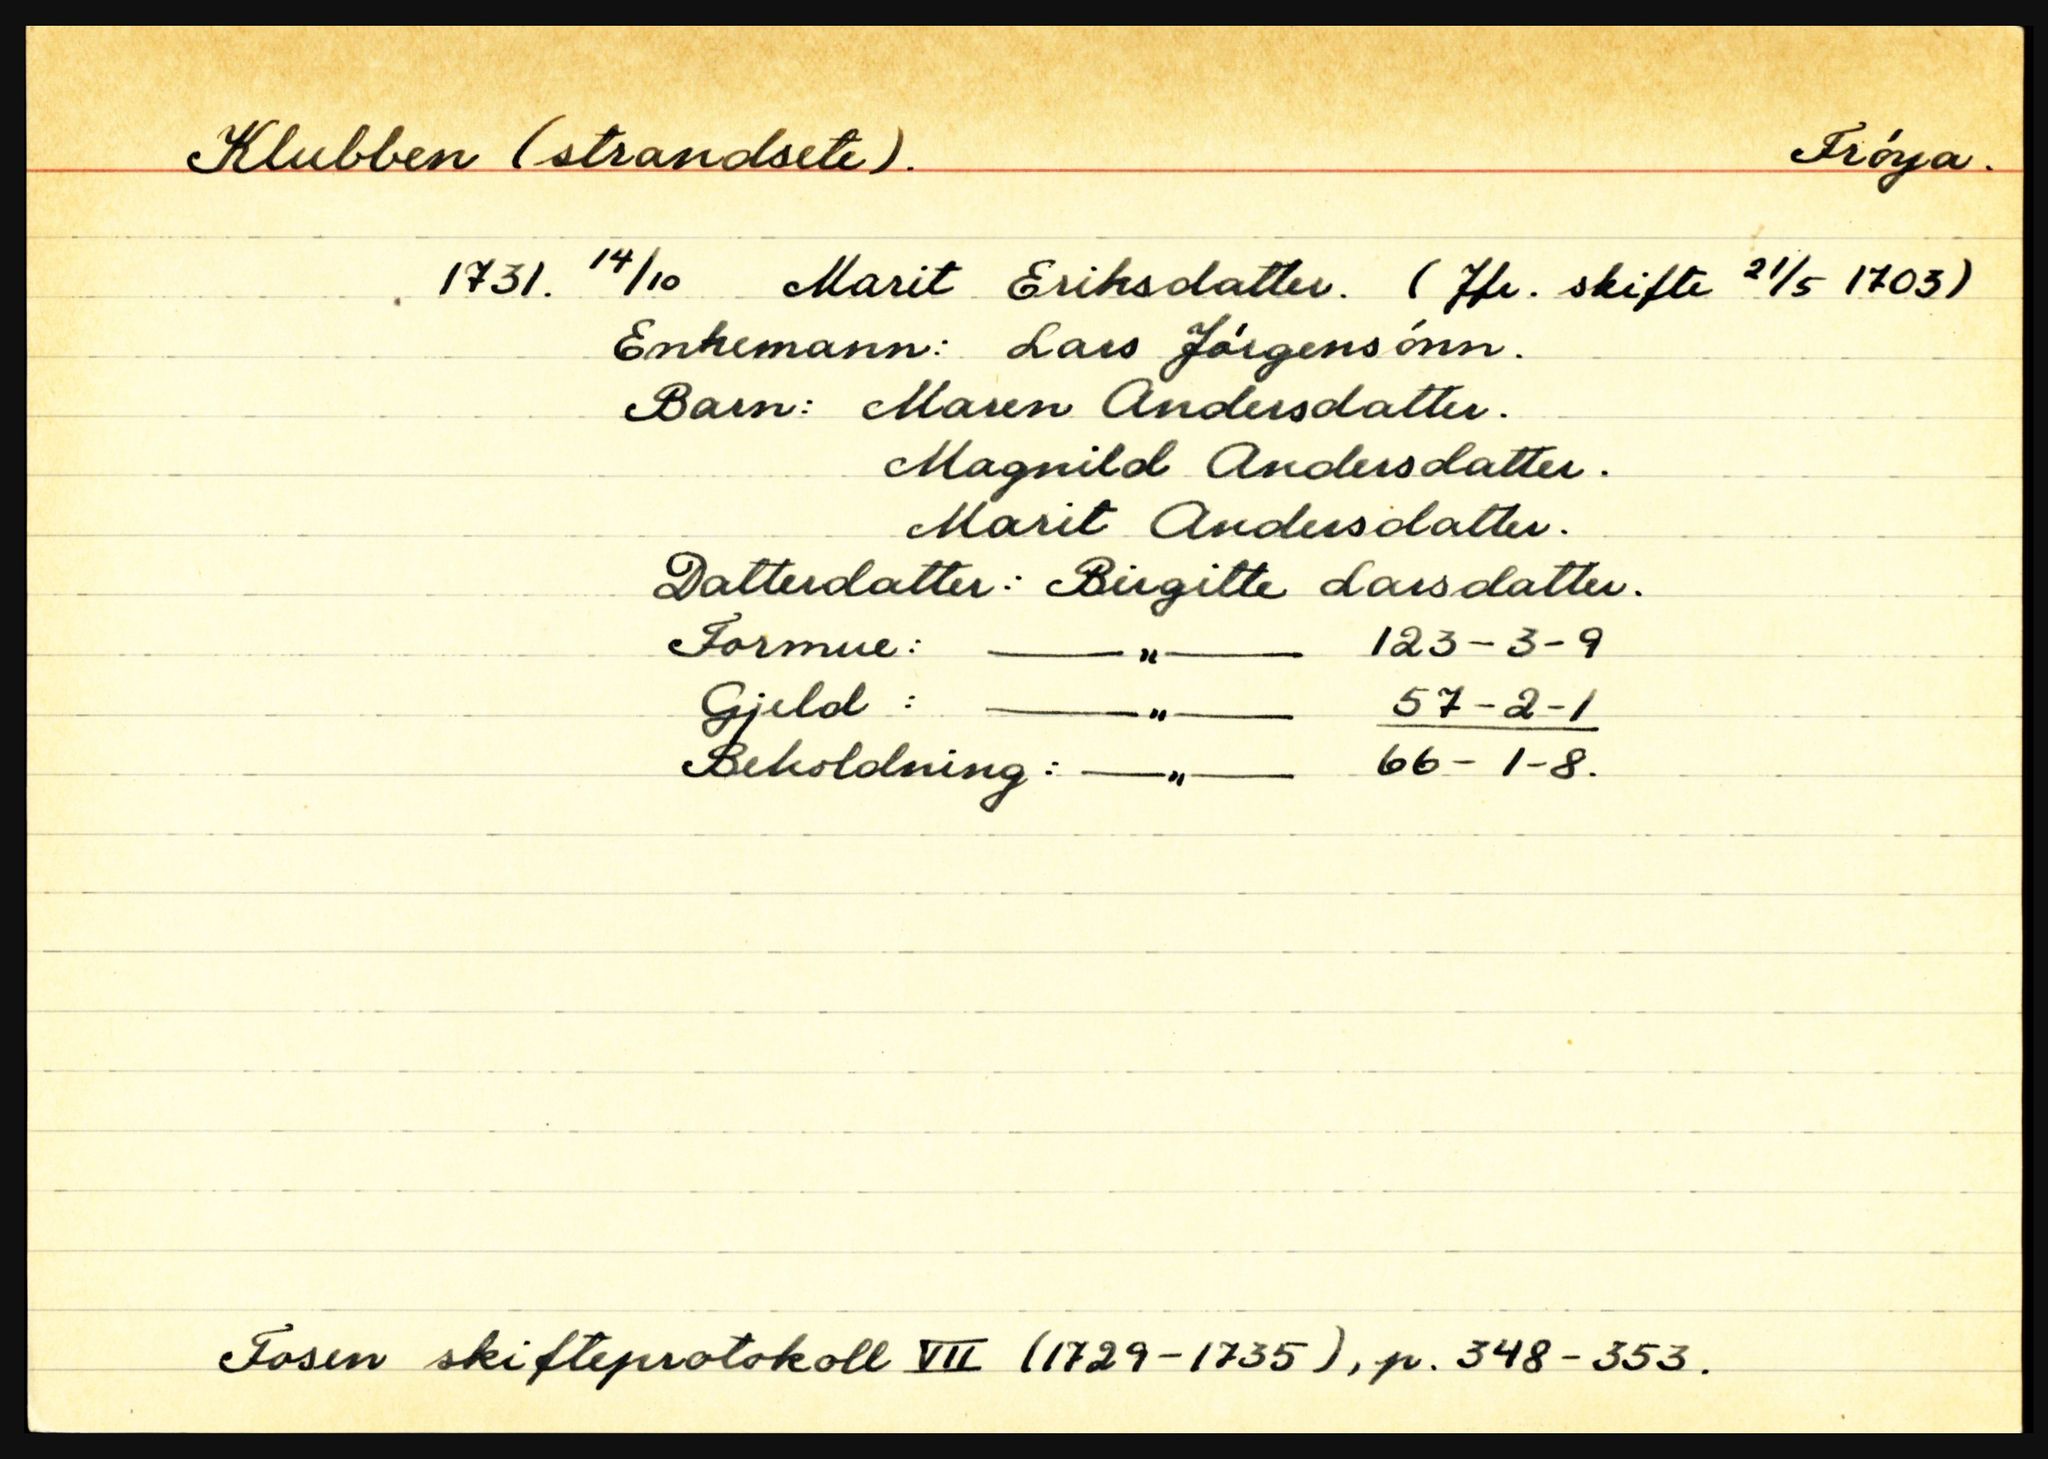 Klubben (strandsete). Frøya.
1731. 14/10 Marit Eriksdatter. (Jfr. skifte 21/5 1703)
Enkemann: Lars Jørgensønn.
Barn: Maren Andersdatter.
Magnild Andersdatter.
Marit Andersdatter.
Datterdatter: Birgitte Larsdatter.
Formue: —〃— 123-3-9
Gjeld : —〃— 57-2-1
Beholdning: —〃— 66-1-8.
Fosen skifteprotokoll VII (1729-1735), p. 348-353.